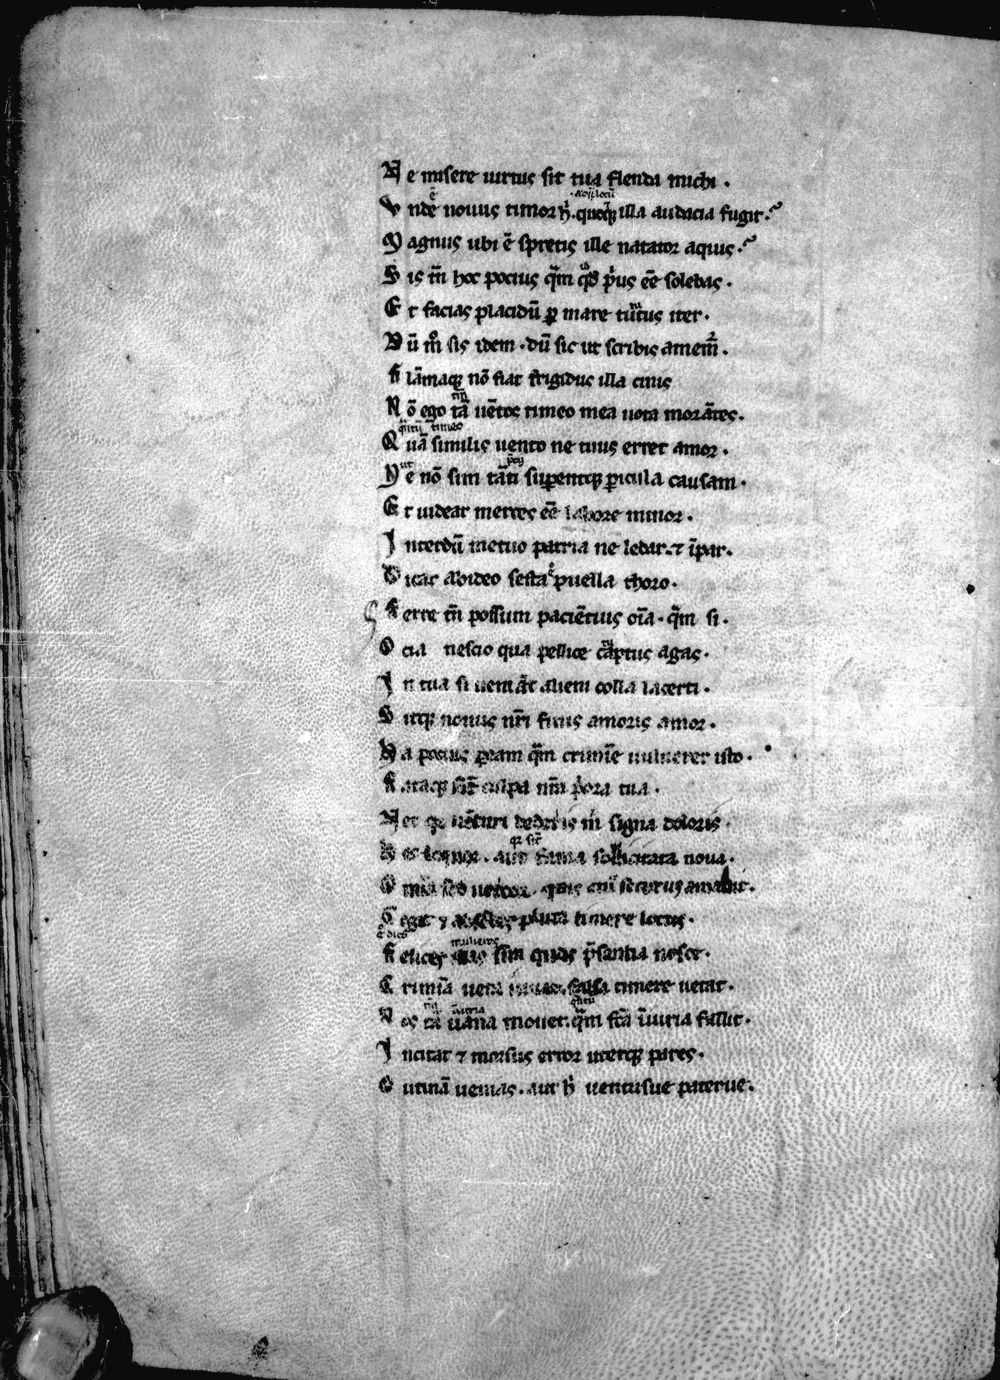 Ne misere uirtus sit tua flenda michi .
ē
Vnde nouus timor hͥ. quoqꝫ illa audacia fugit.
Magnus ubi ē spretis ille natator aquis.
Sis tn̄ hoc pocius qͣm qd̄ pͥus ēē solebas.
Et facias placidū p̲ mare tutus iter.
Dū mͦ sis idem . dū sic ut scribis amem̃ .
Flāmaqꝫ nō fiat frigidus illa cinis
Nō ego tā uētos timeo mea uota morātes.
timeo
Quā similis uento ne tuus erret amor .
ut
Ne nō sim tāti sup̲entqꝫ p̲icula causam .
Et uidear merces ēē labore minor .
Interdū metuo patria ne ledar. ⁊ īpar.
Dicar abideo sesta puella thoro.
Ferre tn̄ possum paciētius oīa . qͣm si .
Ocia nescio qua pellice captus agas.
In tua si ueniāt alieni colla lacerti .
Sitqꝫ nouus nr̄i finis amoris amor .
Na pocius p̲eam qͣm crimīe uulnerer isto .
Fataqꝫ sīt culpa nr̄a pͥora tua .
Nec qꝫ uēturi dederis m̄ signa doloris .
Hec loquor . aut fama sollicitata noua .
Omīa sed uereor . quis enī securus amauit .
Cogit ⁊ absētes plura timere locus .
mulieres
Felices illas sim quas p̄sentia nosce .
Crimīa uera iuuat. falsa timere uetat .
Nos tā uana mouet. qͣm fc̄a īiuria fallit .
Incitat ⁊ morsus error uterqꝫ pares .
Outinā uenias . aut hͥ uentusue paterue .